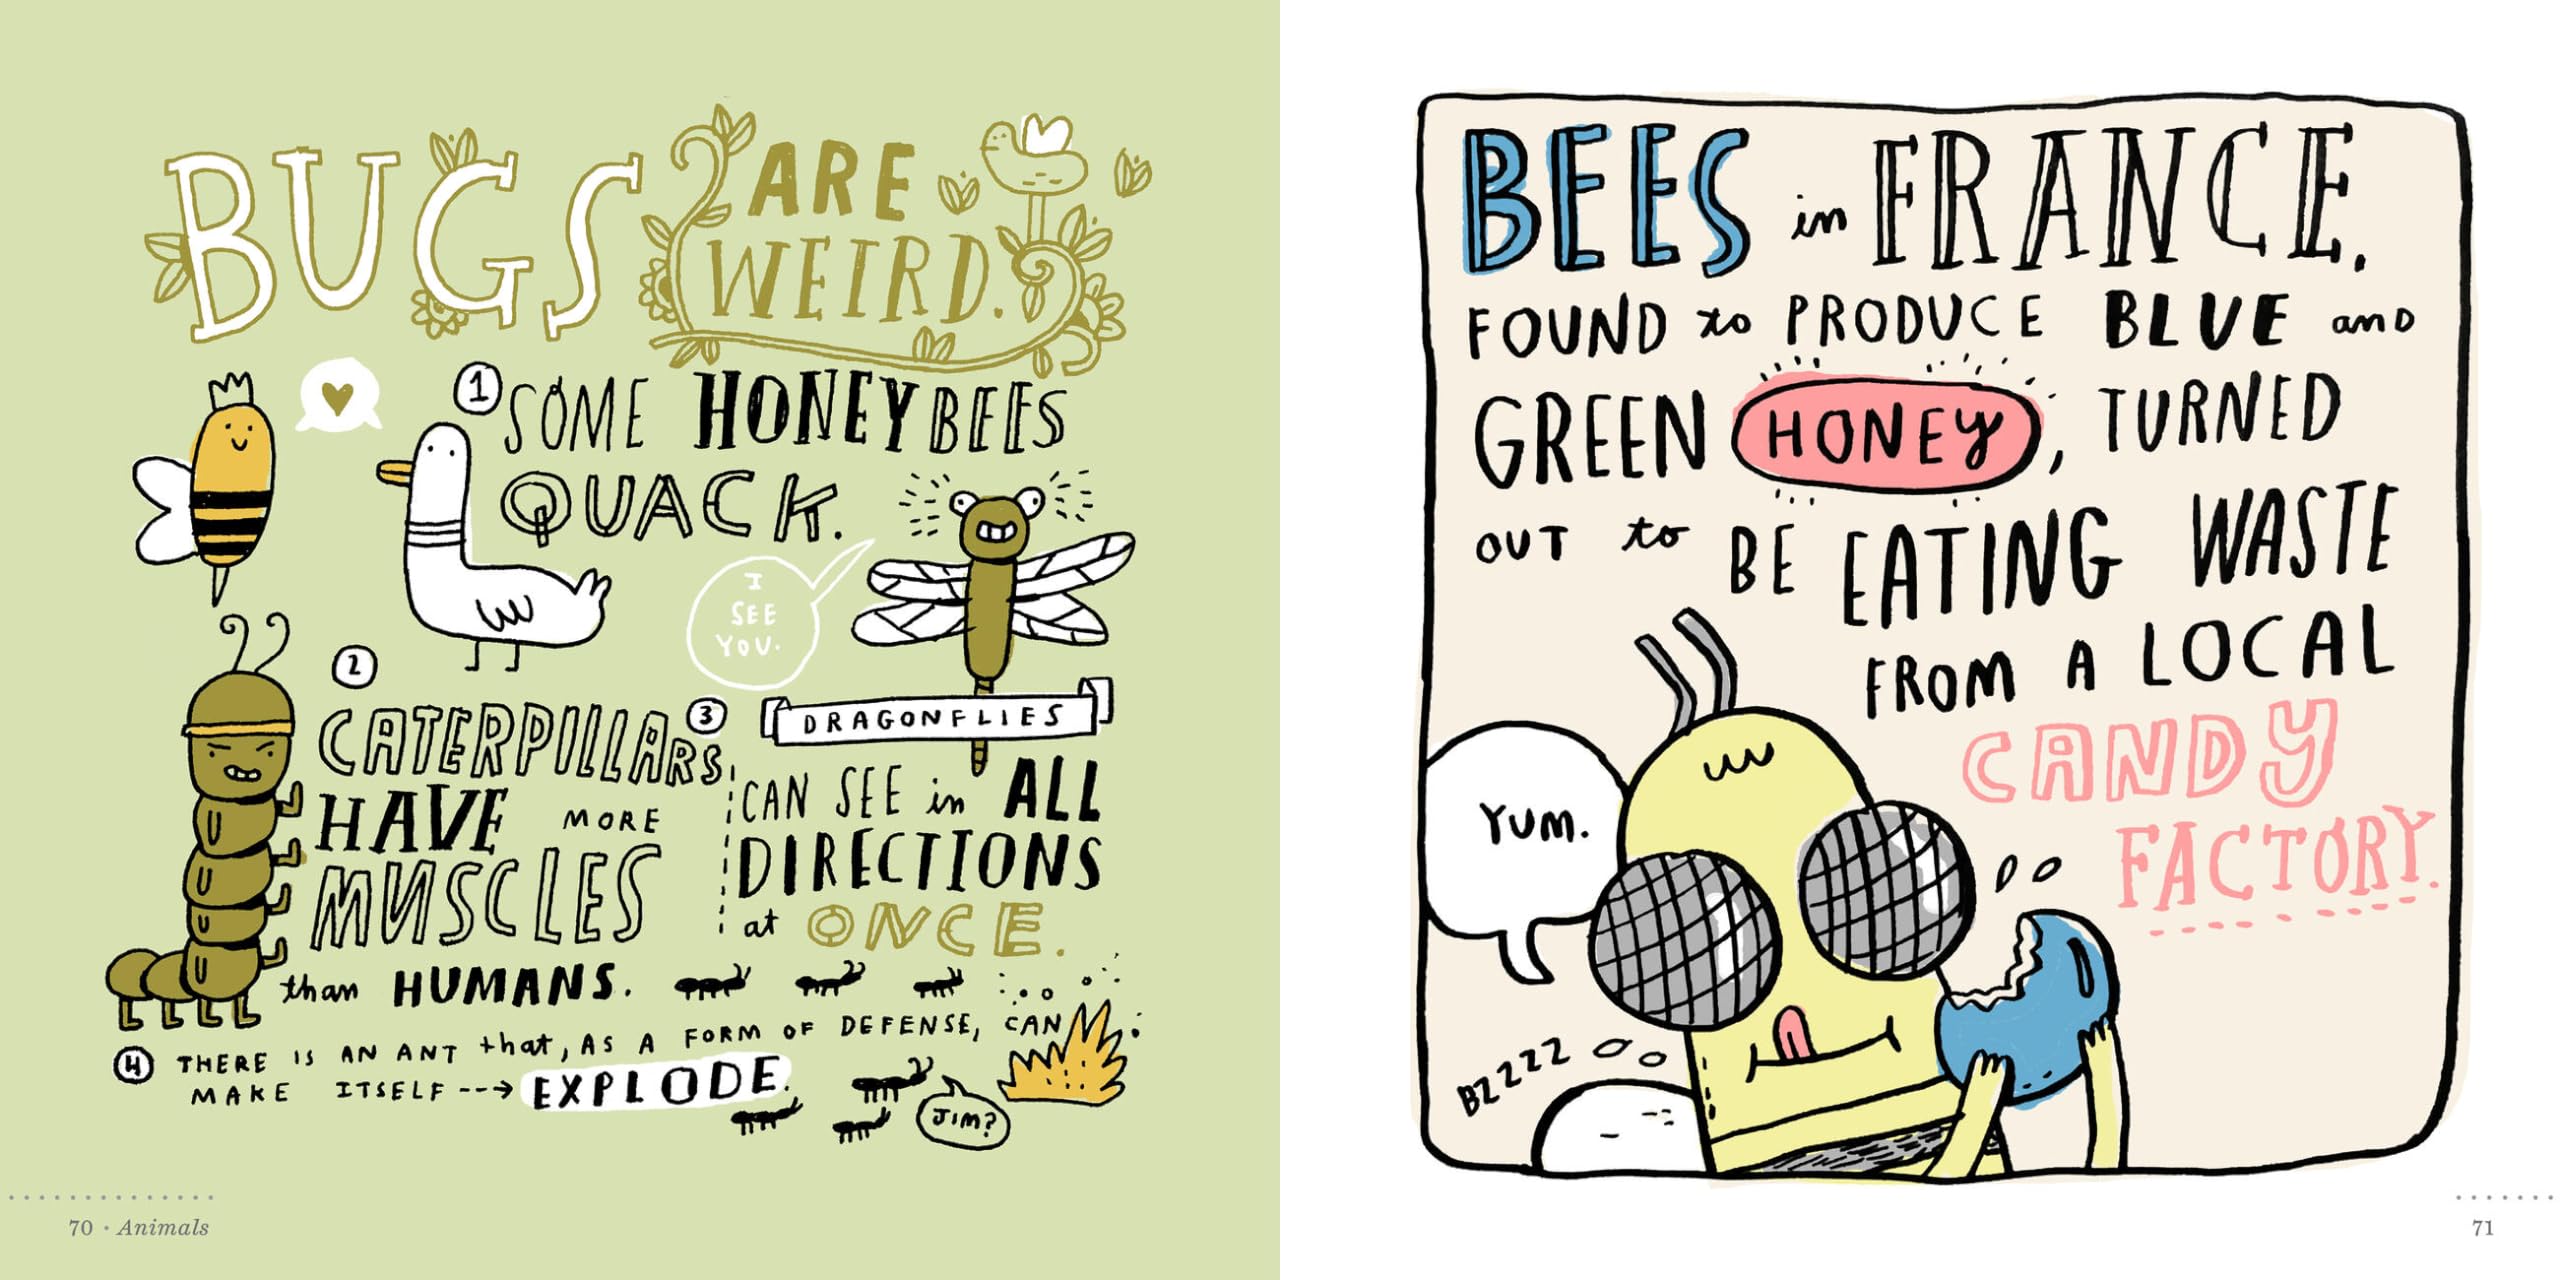 BUGS ARE
WEIRD.
1 SOME HONEYBEES
QUACK.
I
SEE
YOU.
2
CATERPILLARS
HAVE MORE
MUSCLES
than HUMANS.
3
DRAGONFLIES
CAN SEE in ALL
DIRECTIONS
at ONCE.
4 THERE IS AN ANT that, AS A FORM OF DEFENSE, CAN
MAKE ITSELF --→ EXPLODE.
JIM?
70 · Animals
BEES in FRANCE,
FOUND to PRODUCE BLUE and
GREEN HONEY, TURNED
OUT to BE EATING WASTE
FROM A LOCAL
CANDY
FACTORY.
YUM.
BZZZZ
71